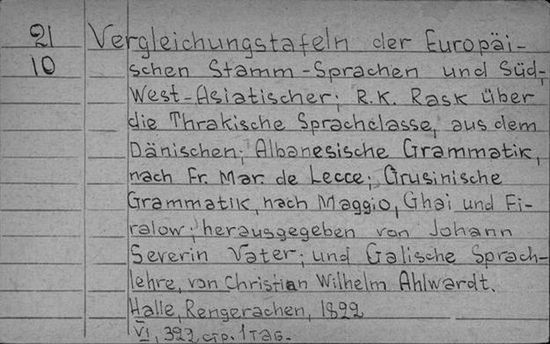 21 Vergleichungstafeln der Europäi-
10 schen Stamm-Sprachen und Süd,
West-Asiatischer; R.K. Rask über
die Thrakische Sprachclasse, aus dem
Dänischen; Albanesische Grammatik,
nach Fr. Mar. de Lecce; Grusinische
Grammatik, nach Maggio, Ghai und Fi-
ralow; herausgegeben von Johann
Severin Vater; und Galische Sprach-
lehre, von Christian Wilhelm Ahlwardt.
Halle, Rengerachen, 1822
VI, 392 стр. 1 таб.